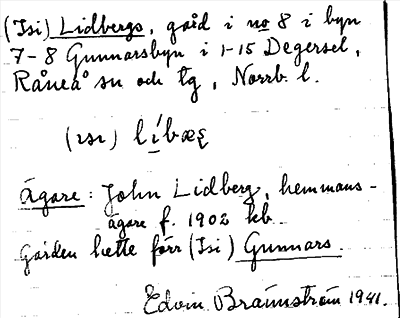 (Isi) Lidbergs, gård i no 8 i byn
7-8 Gunnarsbyn i 1-15 Degersel,
Råneå sn och tg, Norrb. l.
(ɪsɪ) líbæʂ
Ägare: John Lidberg, hemmans-
ägare f. 1902 kb.
Gården hette förr (Isi) Gunnars.
Edvin Brännström 1941.